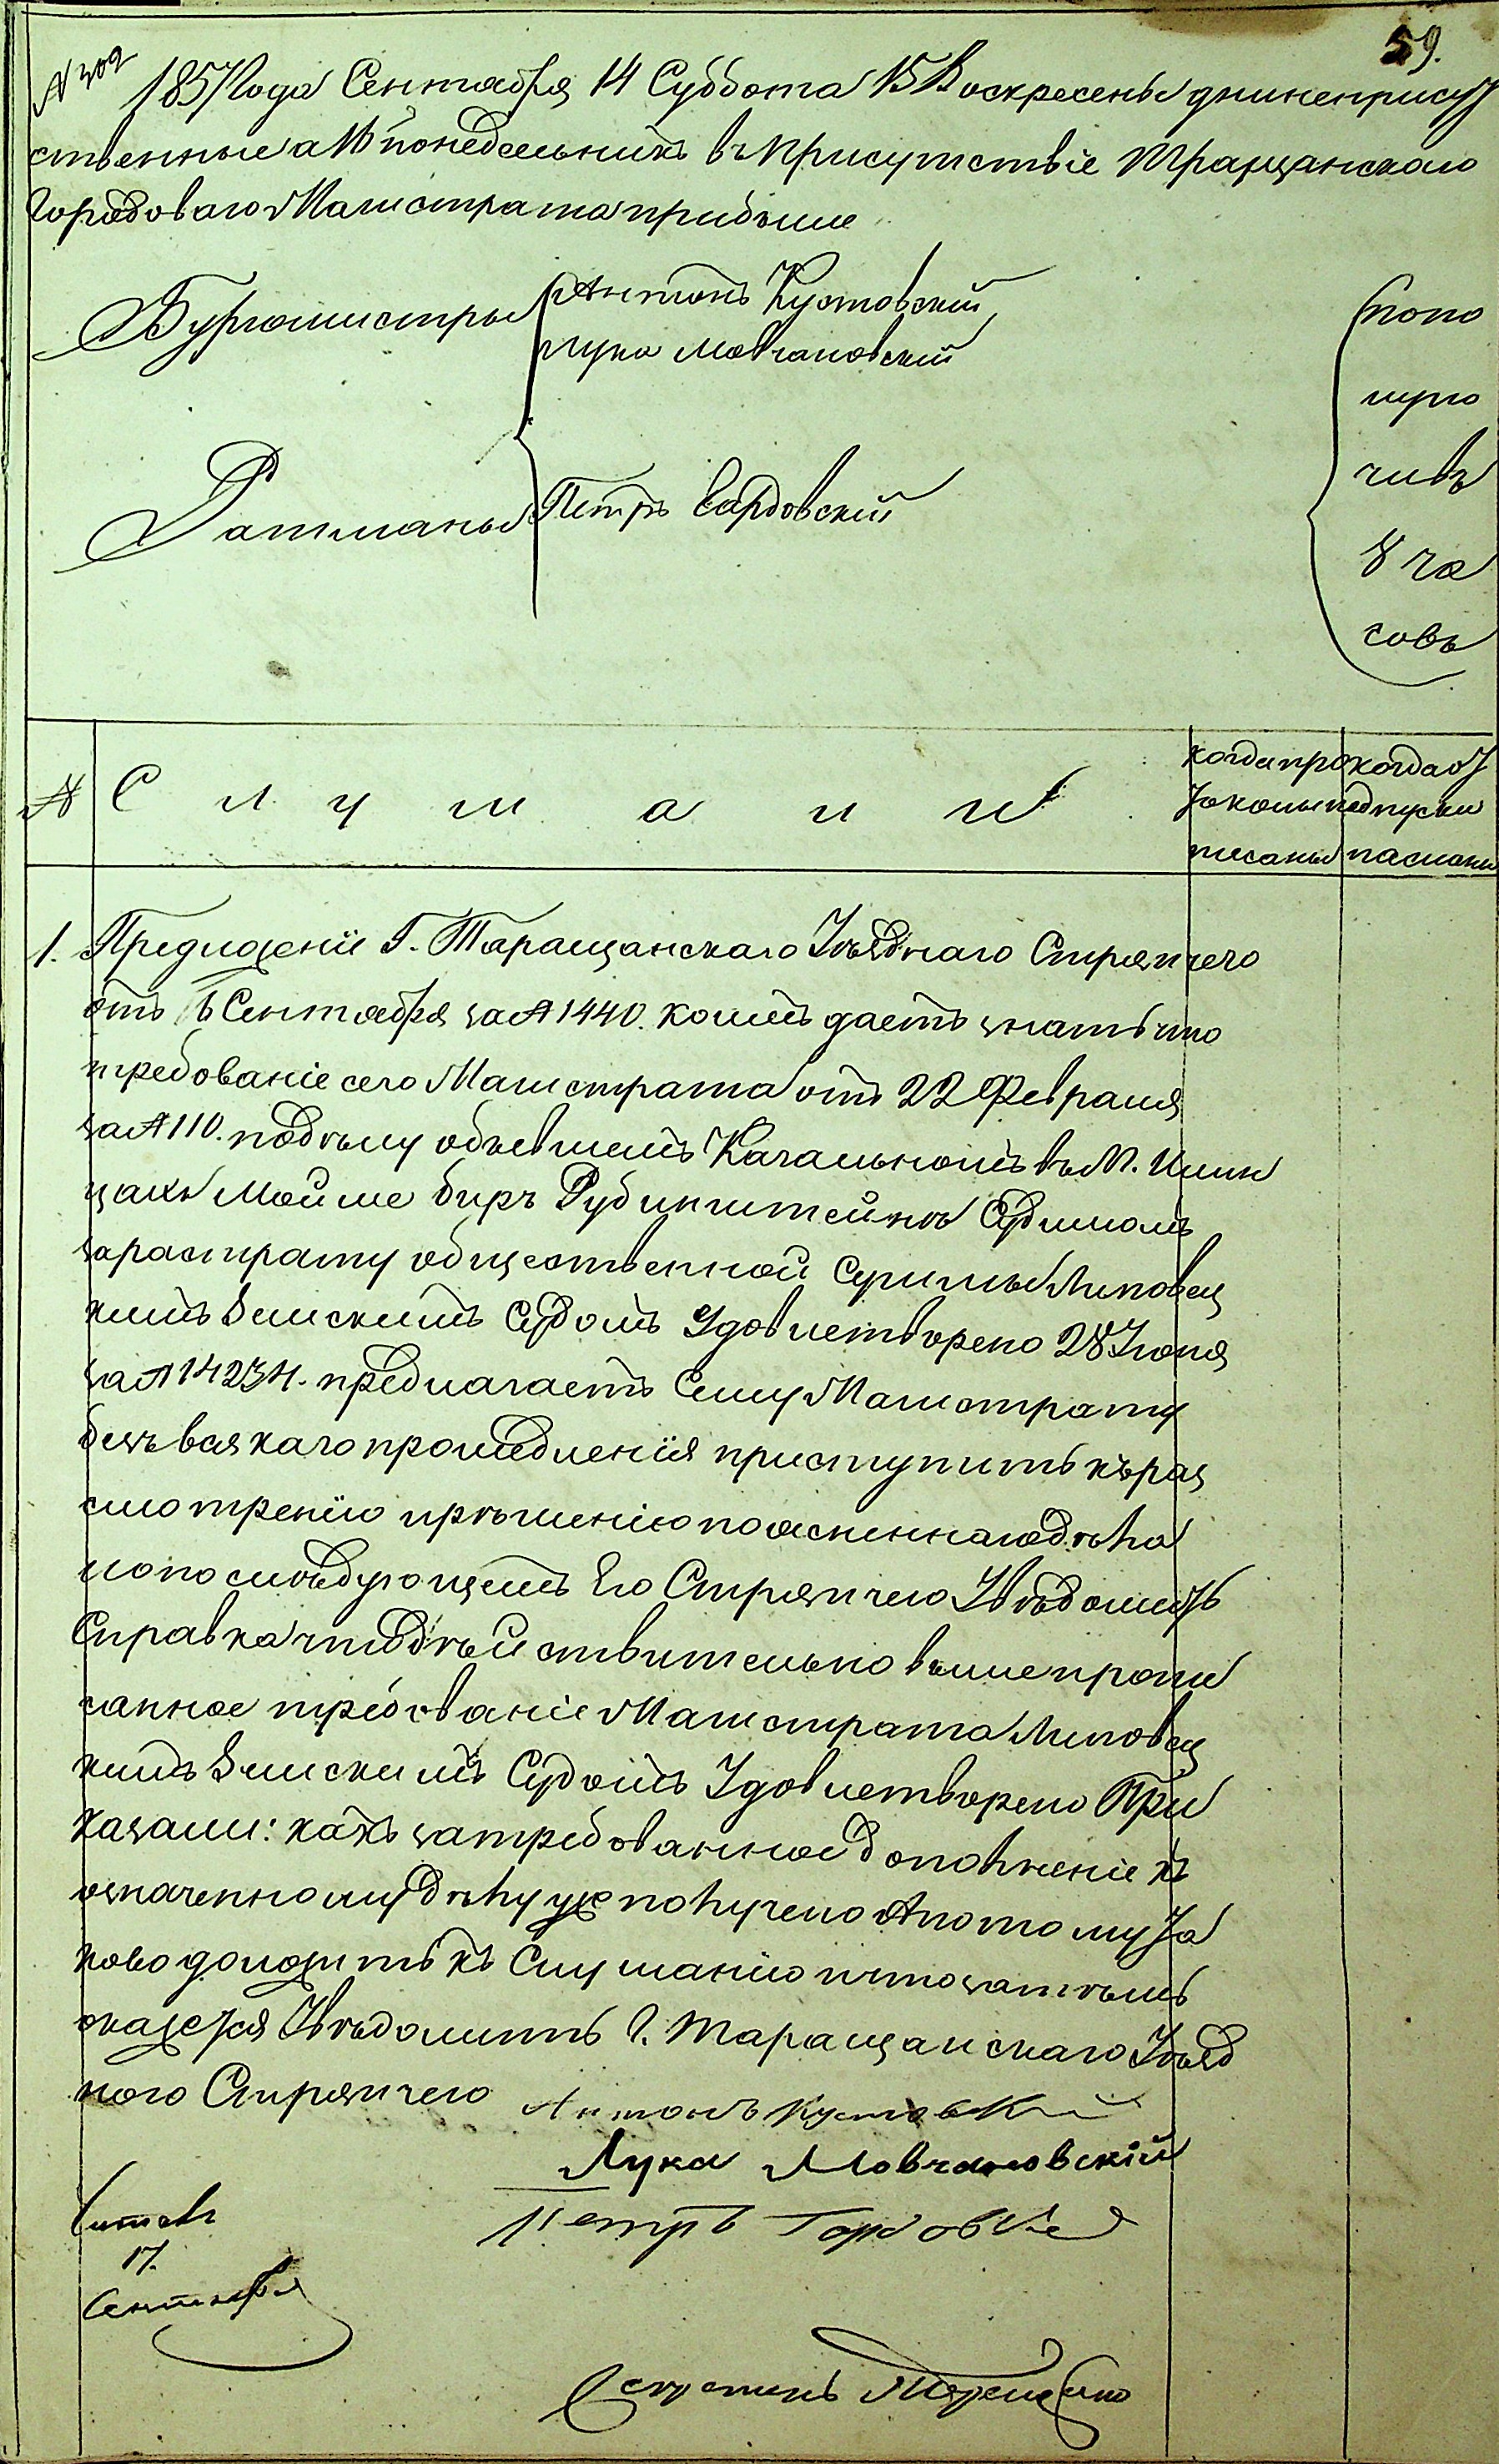 59.
№ 302
1857 года Сентября 14 Суббота 15 Воскресенье дни неприсут
ственные а 16 понедельникъ въ присутствіе Таращанскаго
Городоваго Магистрата прибыли
Бургомистры
Антонъ Кустовскій
Лука Мовчановскій
Ратманы
Петръ Гардовскій
пополу
чивъ
8 ча
совъ
№
Слушали
когда про
токолы под
писаны
когда от
пуски
писаны
1. Предложеніе Г. Таращанскаго Уѣзднаго Стряпчего
отъ 6 Сентября за № 1440. коимъ даетъ знать что
требованіе сего Магистрата отъ 22 Февраля
за № 110. подѣлу объ евреемъ Кагальномъ въ М.
Мойше Беръ Рубинштейнъ Судимомъ
зарастрату общественной Суммы Липовец
кимъ Земскимъ Судомъ Удовлетворено 28 Іюня
за № 14234. предлагаетъ Сему Магистрату
безъ всякаго промедленія приступить къ раз
смотренію ирѣшенію поясненнаго дѣла
ипослѣдующемъ Его Стряпчего Увѣдомить
Справка что дѣйствительно вышепропи
санное требованіе Магистрата Липовец
кимъ Земскимъ Судомъ Удовлетворено При
казали: какъ затребованное дополненіе къ
означенному дѣлу уже получено А потому та
ково доложить къ Слушанію ичто затѣмъ
окажется Увѣдомить Г. Таращанскаго Уѣзд
ного Стряпчего
Антонъ Кустовскій
Лука Мовчановскій
Петръ
Читавъ
17.
Сентября